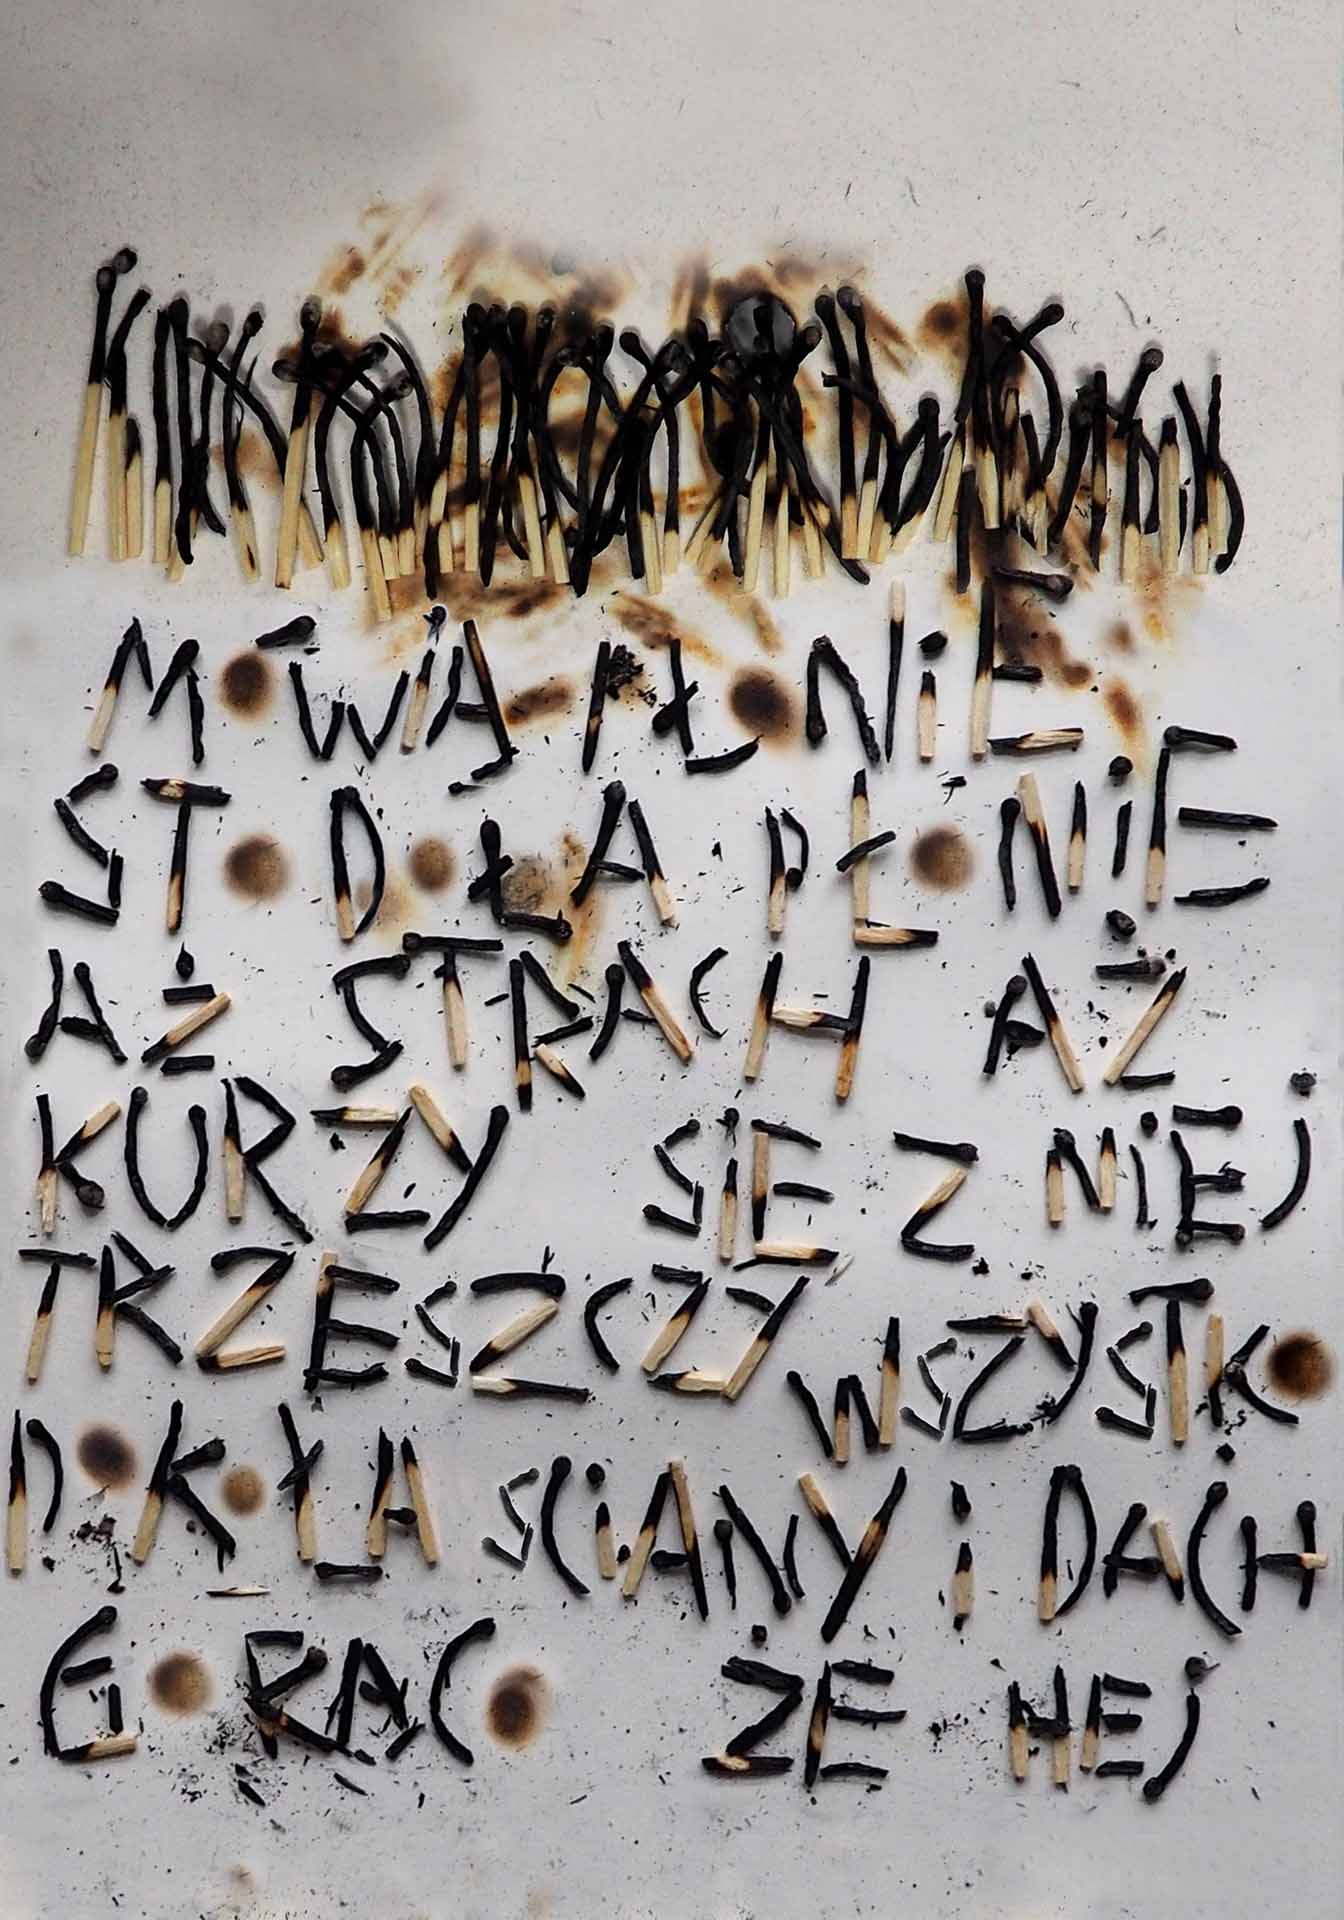 MÓWIĄ PŁONIE
STODOŁA PŁONIE
AŻ STRACH AŻ
KURZY SIĘ Z NIEJ
TRZESZCZY WSZYSTKO
DOKOŁA SCIANY i DACH
GORĄCO ŻE HEJ